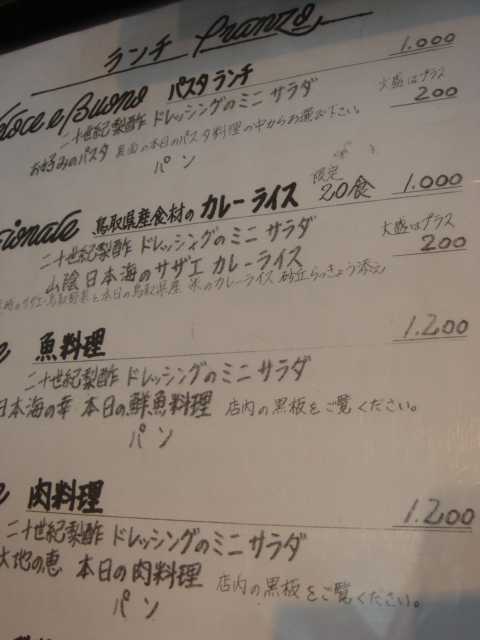 ランチ Pranzo
e Buono パスタランチ 1.000
二十世紀梨酢 ドレッシングのミニ サラダ 大盛はプラス 200
お好みのパスタ 裏面の本日のパスタ料理の中からお選び下さい。
パン
鳥取県産食材の カレーライス 限定 20食 1.000
二十世紀梨酢 ドレッシングのミニ サラダ 大盛はプラス 200
山陰 日本海のサザエ カレーライス
のサザエ・鳥取野菜と本日の鳥取県産 米のカレーライス 砂丘らっきょう添え
魚料理 1.200
二十世紀梨酢 ドレッシングのミニ サラダ
日本海の幸 本日の鮮魚料理 店内の黒板をご覧ください。
パン
肉料理 1.200
二十世紀梨酢 ドレッシングのミニ サラダ
大地の恵 本日の肉料理 店内の黒板をご覧ください。
パン